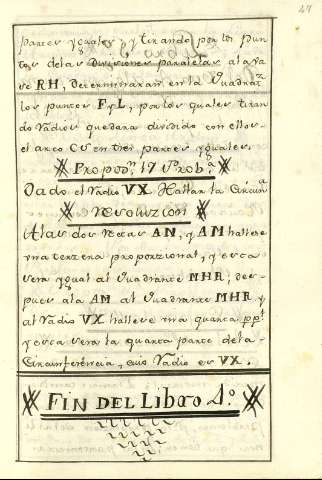 47
partes yguales, y tirando por los pun
tos delas divisiones paralelas ala va
se RH, determinaran en la quadratz
los puntos F y L, por los quales tiran
do Radios quedara dividido con ellos
el arco CG en tres partes yguales.
Propon. 17 Prob.ª
Dado el Radio VX Hallar la Circunª
Resoluzion
Alas dos Rectas AN, y AM hallese
vna tercera proporzional, y esta
sera ygual al Quadrante MHR; des-
pues ala AM al Quadrante MHR y
al Radio VX hallese vna quarta ppl
y esta sera la quarta parte dela
Circunferencia, cuio Radio es VX.
FIN DEL Libro 4.º